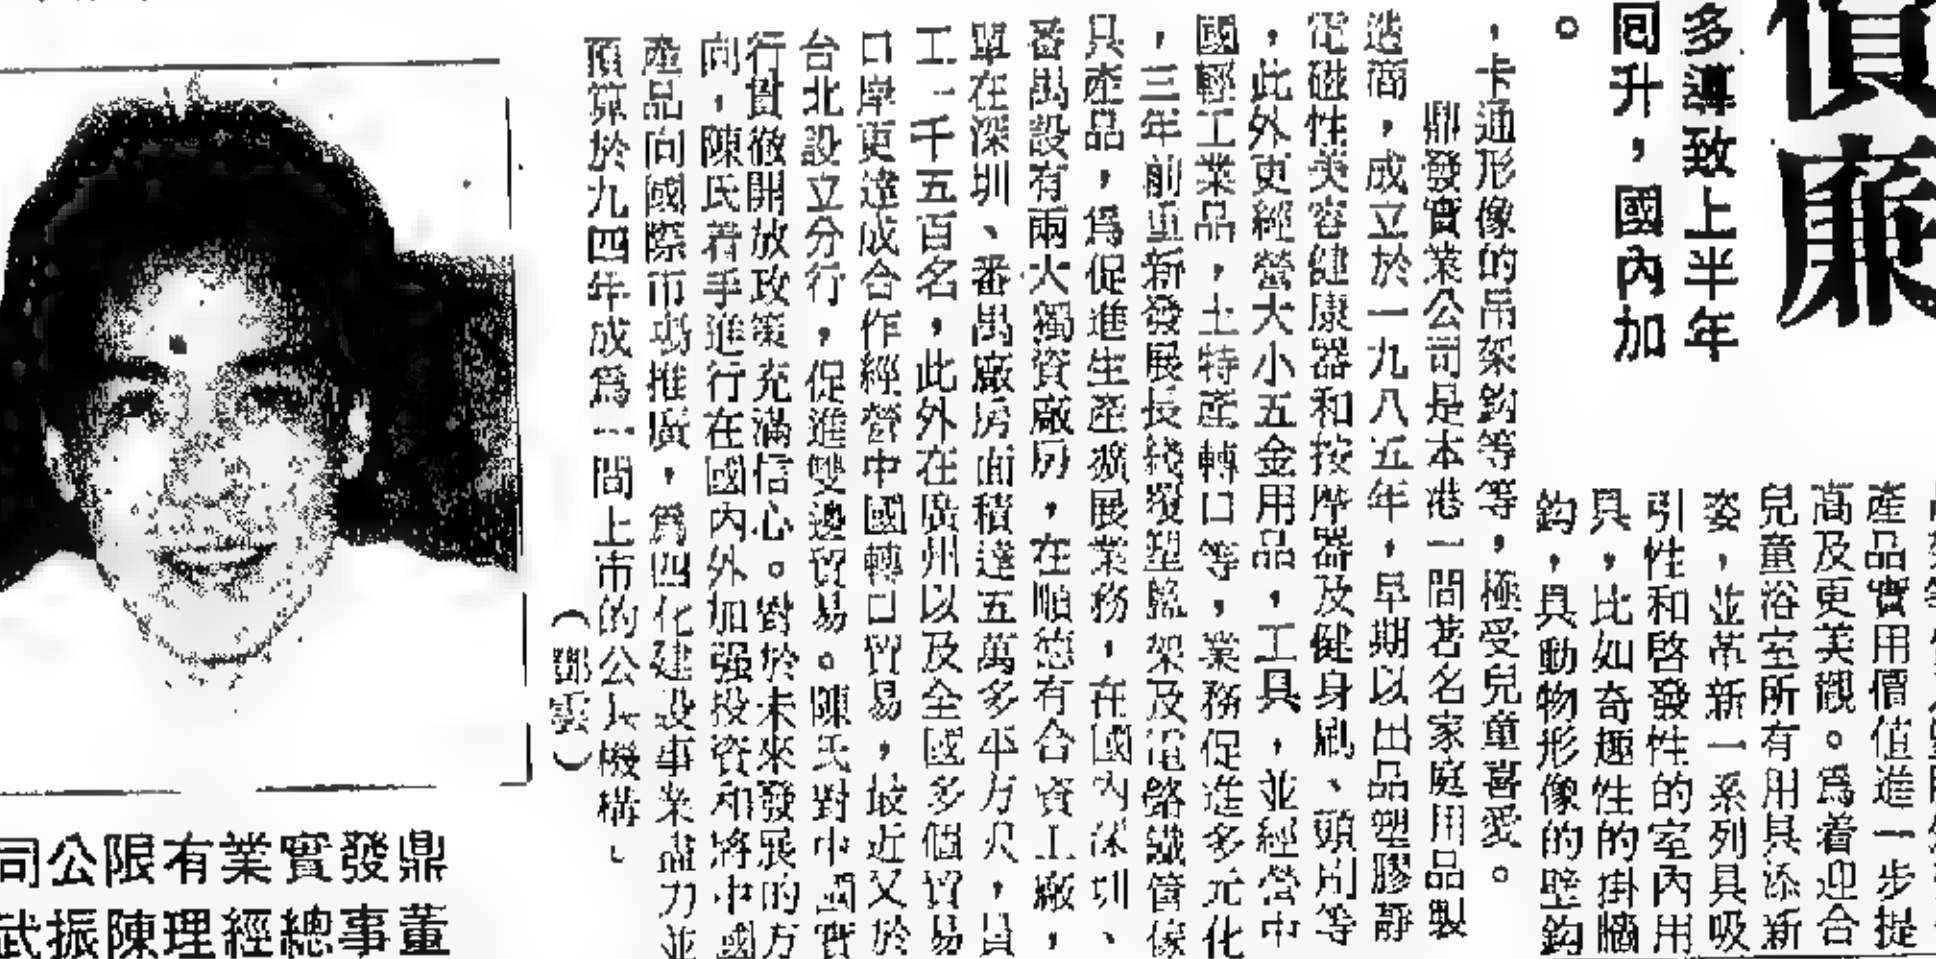 價廉
多導致上半年
同升,國內加
。
產品實用價值進一步提
高及更美觀。爲着迎合
兒童浴室所有用具添新
姿,並革新一系列具吸
引性和啓發性的室內用
具,比如奇趣性的掛牆
鈎,具動物形像的壁鈎
,卡通形像的吊架鈎等等,極受兒童喜愛。
鼎發實業公司是本港一間著名家庭用品製
造商,成立於一九八五年,早期以出品塑膠靜
電磁性美容健康器和按摩器及健身刷、頭刷等
,此外更經營大小五金用品,工具,並經營中
國輕工業品,土特產轉口等,業務促進多元化
,三年前重新發展長綫覆塑膠架及電鉻鐵管傢
具產品,爲促進生產擴展業務,在國內深圳、
番禺設有兩大獨資廠房,在順德有合資工廠,
單在深圳、番禺廠房面積達五萬多平方尺,員
工一千五百名,此外在廣州以及全國多個貿易
口岸更達成合作經營中國轉口貿易,最近又於
台北設立分行,促進雙邊貿易。陳氏對中國實
行貫徹開放政策充滿信心。對於未來發展的方
向,陳氏着手進行在國內外加强投資和將中國
產品向國際市場推廣,爲四化建設事業盡力並
預算於九四年成爲一間上市的公共機構。
(鄧雲)
鼎發實業有限公司
董事總經理陳振武